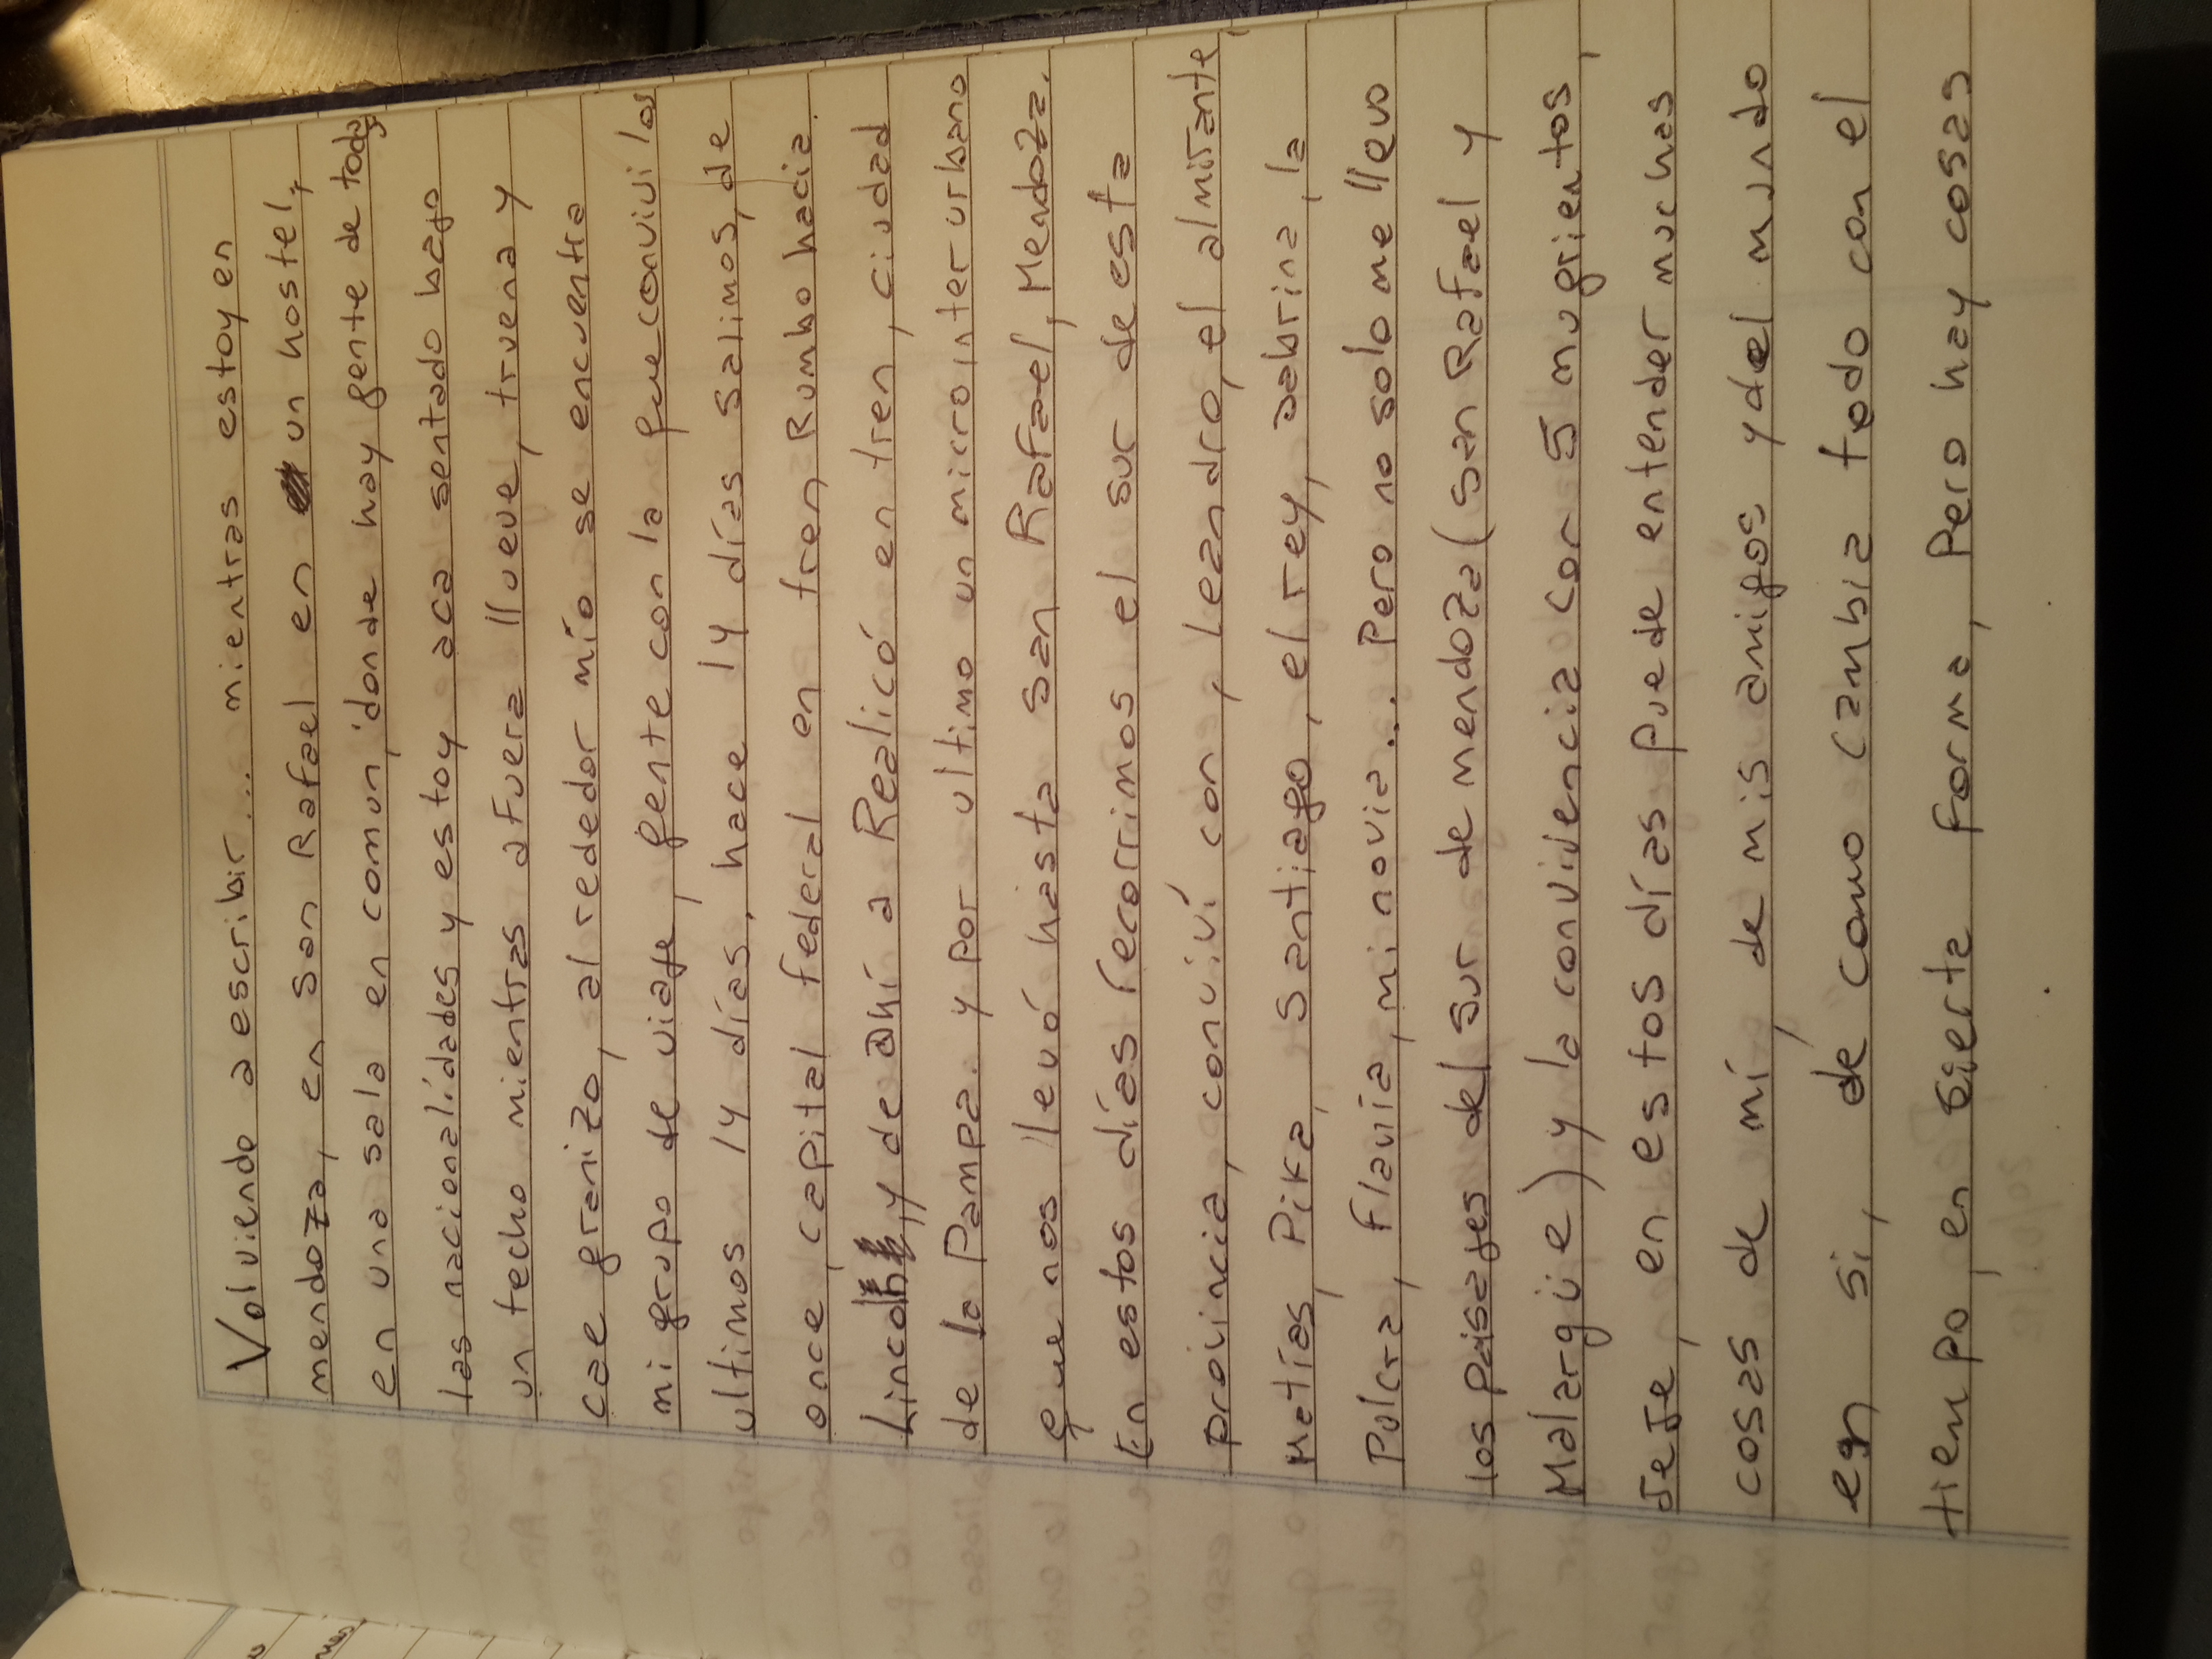 Volviendo a escribir... mientras estoy en
mendoza, en San Rafael en un hostel,
en una sala en comun, donde hay gente de todas
las nacionalidades y estoy aca sentado bajo
un techo mientras afuera llueve, truena y
cae granizo, al rededor mío se encuentra
mi grupo de viaje, gente con la que conviví los
ultimos 14 días. hace 14 días salimos, de
once, capital federal en tren Rumbo hacia
Lincoln, y de ahí a Realicó en tren, ciudad
de la Pampa. y por ultimo un micro interurbano
que nos llevó hasta san Rafael, Mendoza.
En estos días recorrimos el sur de esta
provincia, conviví con, Leandro, el almirante,
Matías, Pika, Santiago, el rey, Sabrina, la
Pulcra, Flavia, mi novia... Pero no solo me llevo
los paisajes del sur de mendoza (san Rafael y
Malargüe) y la convivencia con 5 mugrientos,
JeJe, en estos días puede entender muchas
cosas de mí, de mis amigos y del mundo
en si, de como cambia todo con el
tiempo, en sierta forma, Pero hay cosas